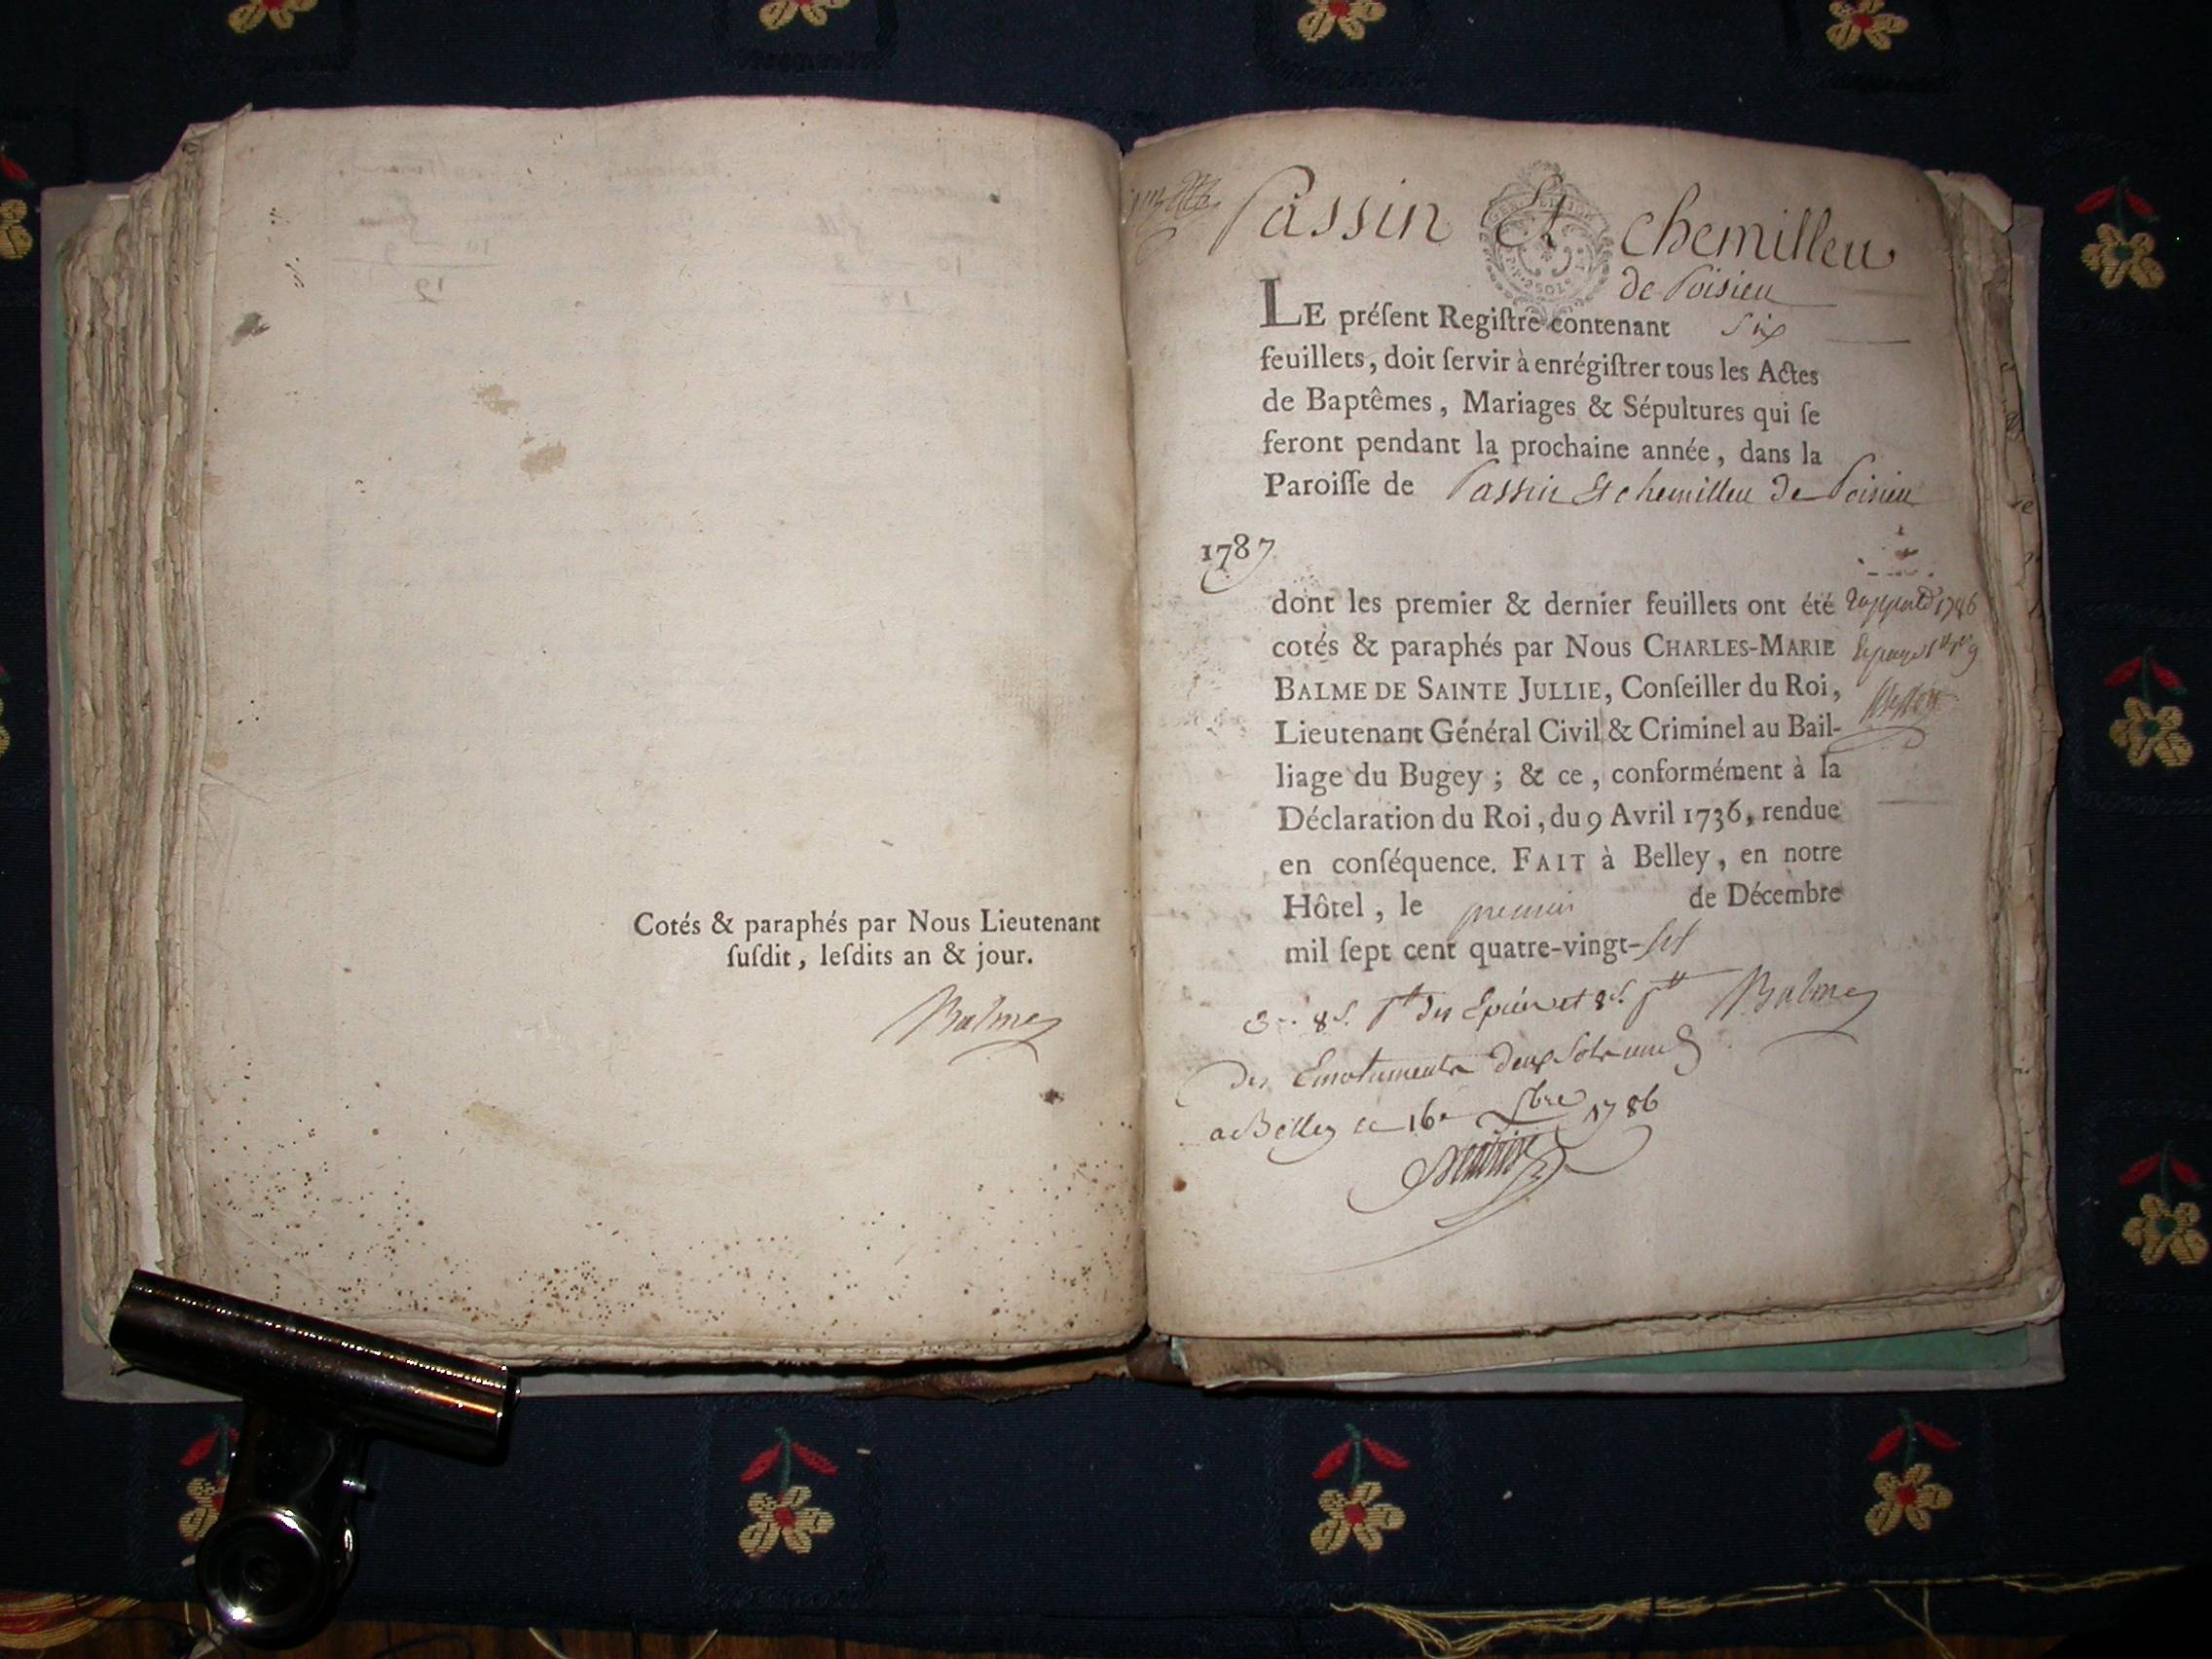 Cotés & paraphés par Nous Lieutenant
ſuſdit, leſdits an & jour.
Balme
Passin Et chemilleu
de Poisieu
LE préſent Regiſtre contenant six
feuillets, doit ſervir à enrégiſtrer tous les Actes
de Baptêmes, Mariages & Sépultures qui ſe
feront pendant la prochaine année, dans la
Paroiſſe de Passin Et chemilleu de Poisieu
1787
dont les premier & dernier feuillets ont été
cotés & paraphés par Nous CHARLES-MARIE
BALME DE SAINTE JULLIE, Conſeiller du Roi,
Lieutenant Général Civil & Criminel au Bail-
liage du Bugey ; & ce, conformément à la
Déclaration du Roi, du 9 Avril 1736, rendue
en conſéquence. FAIT à Belley, en notre
Hôtel, le premier de Décembre
mil ſept cent quatre-vingt-
1786
Balme
des Emoluments deux sols
a Belley le 16e 1786